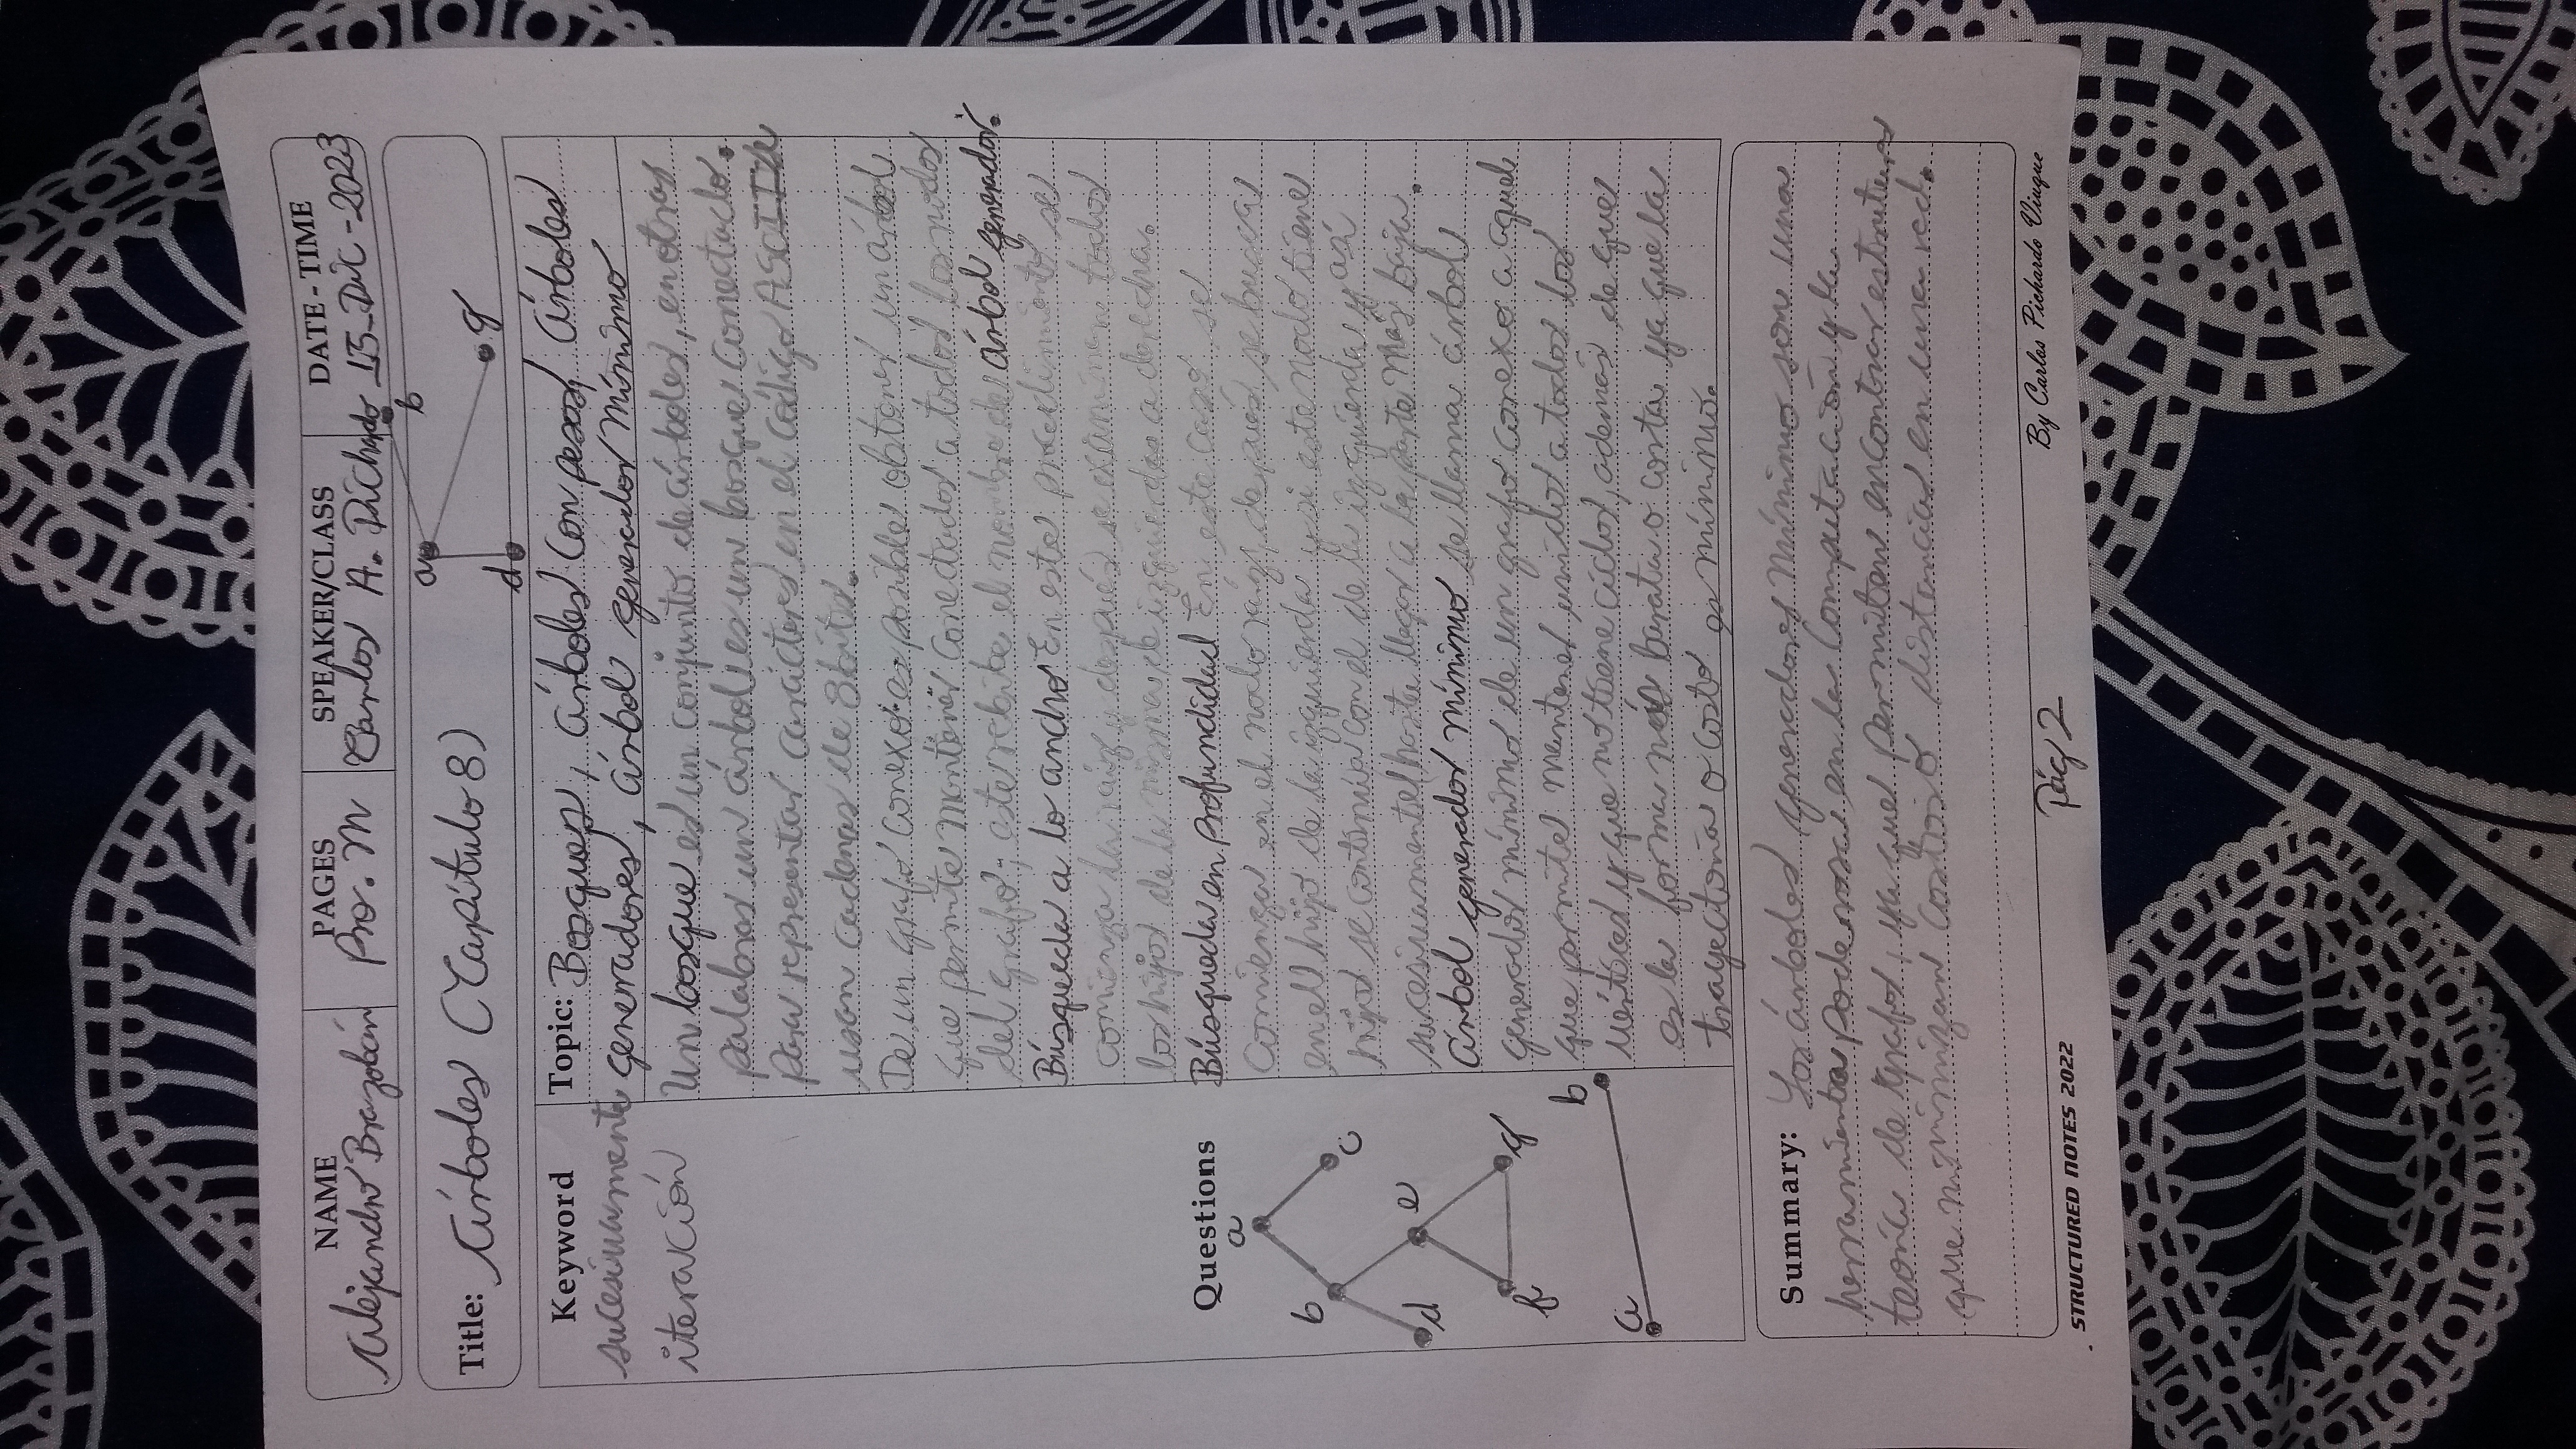 NAME PAGES SPEAKER/CLASS DATE-TIME
Alejandro Brazobán Pro. M Carlos A. Pichardo 15-Dic-2023
Title: Árboles (Capítulo 8)
a b
g
d
Keyword
sucesivamente
iteración
Topic: Bosques, árboles con pesos, árboles
generadores, árbol generador mínimo
Un bosque es un conjunto de árboles, en otras
palabras un árbol es un bosque conectado.
para representar carácteres en el código ASCII se
usan cadenas de 8 bits.
De un grafo conexo es posible obtener un árbol
que permite mantener conectados a todos los nodos
del grafo; este recibe el nombre de árbol generador.
Búsqueda a lo ancho En este procedimiento se
comienza la raíz y después se examinen todos
los hijos de la misma de izquierda a derecha.
Búsqueda en profundidad En este caso se
comienza en el nodo raíz, después se busca
en el hijo de la izquierda y si este nodo tiene
hijos se continúa con el de la izquierda y así
sucesivamente hasta llegar a la parte más baja.
Árbol generador mínimo se llama árbol
generador mínimo de un grafo conexo a aquel
que permite mantener unidos a todos los
vértices y que no tiene ciclos, además de que
es la forma más barata o corta ya que la
trayectoria o costo es mínimo.
Questions
a
b
c
d
e
f
g
b
a
Summary: Los árboles generadores mínimo son una
herramienta poderosa en la Computación y la
teoría de grafos, ya que permiten encontrar
que minimizan costos o distancias en una red.
STRUCTURED NOTES 2022
Pág 2
By Carlos Pichardo Viuque